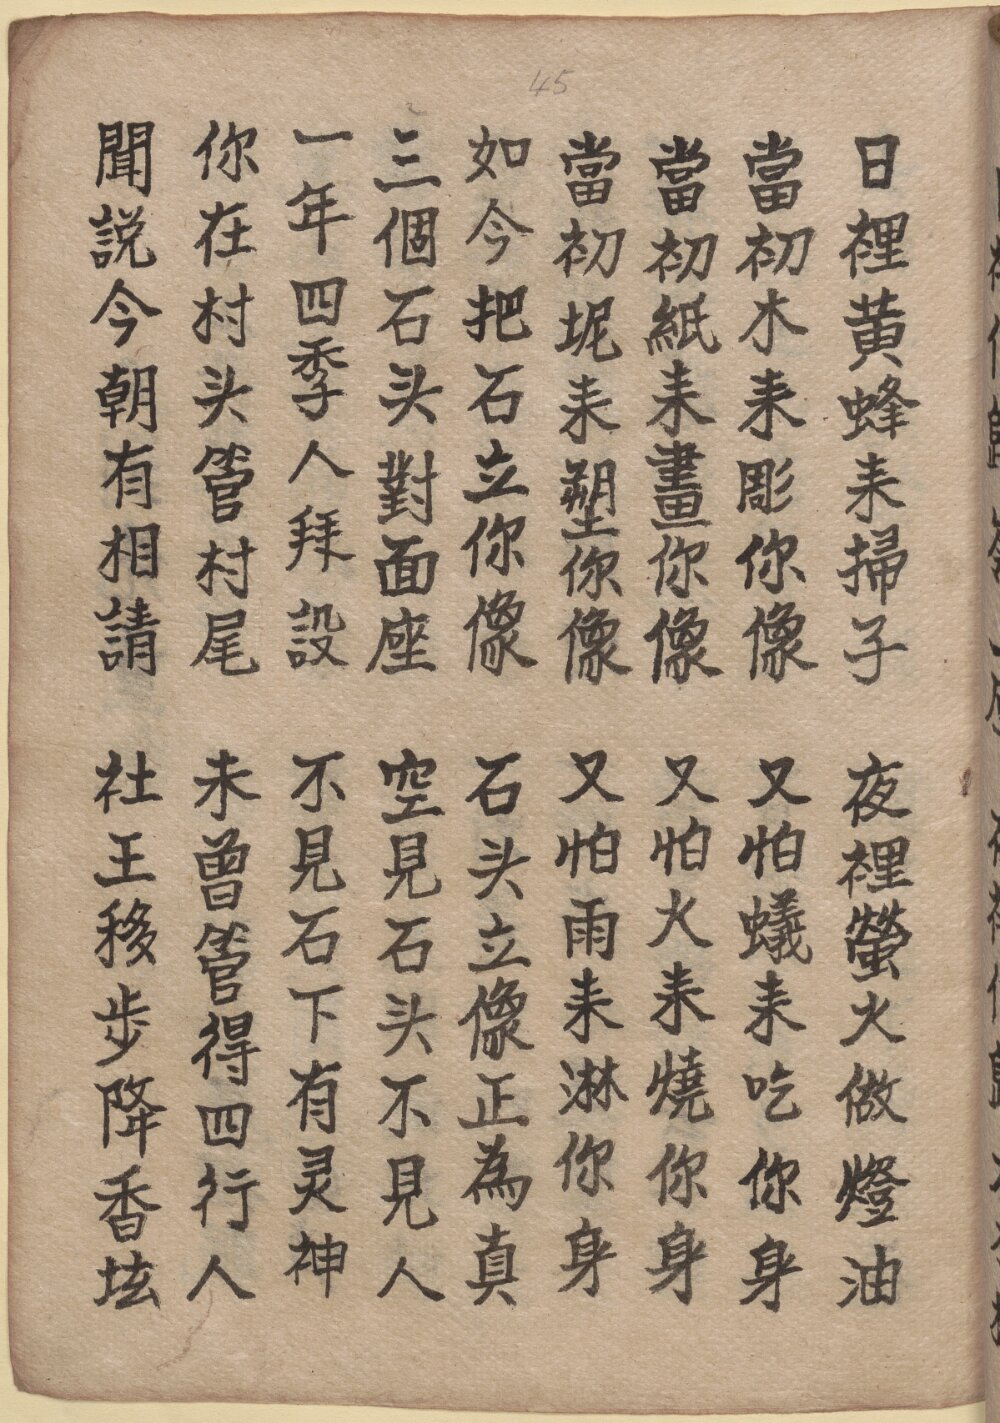 45
日裡黄蜂耒掃子　夜裡螢火做燈油
當初木耒彫你像　又怕蟻耒吃你身
當初紙耒畫你像　又怕火耒燒你身
當初坭耒塑你像　又怕雨耒淋你身
如今把石立你像　石头立像正為真
三個石头對面座　空見石头不見人
一年四季人拜設　不見石下有灵神
你在村头管村尾　未曽管得四行人
聞説今朝有相請　社王移步降香坛